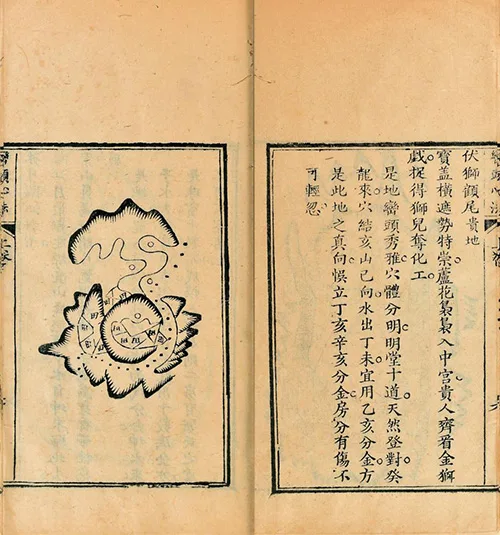 伏獅顧尾貴地
寶盖橫遮勢特崇蘆花裊裊入中宮貴人齊晉金獅
戯捉得獅兒奪化工
是地巒頭秀雅穴體分明明堂十道天然登對癸
龍來穴結亥山巳向水出丁未宜用乙亥分金方
是此地之真向悞立丁亥辛亥分金房分有傷不
可輕忽